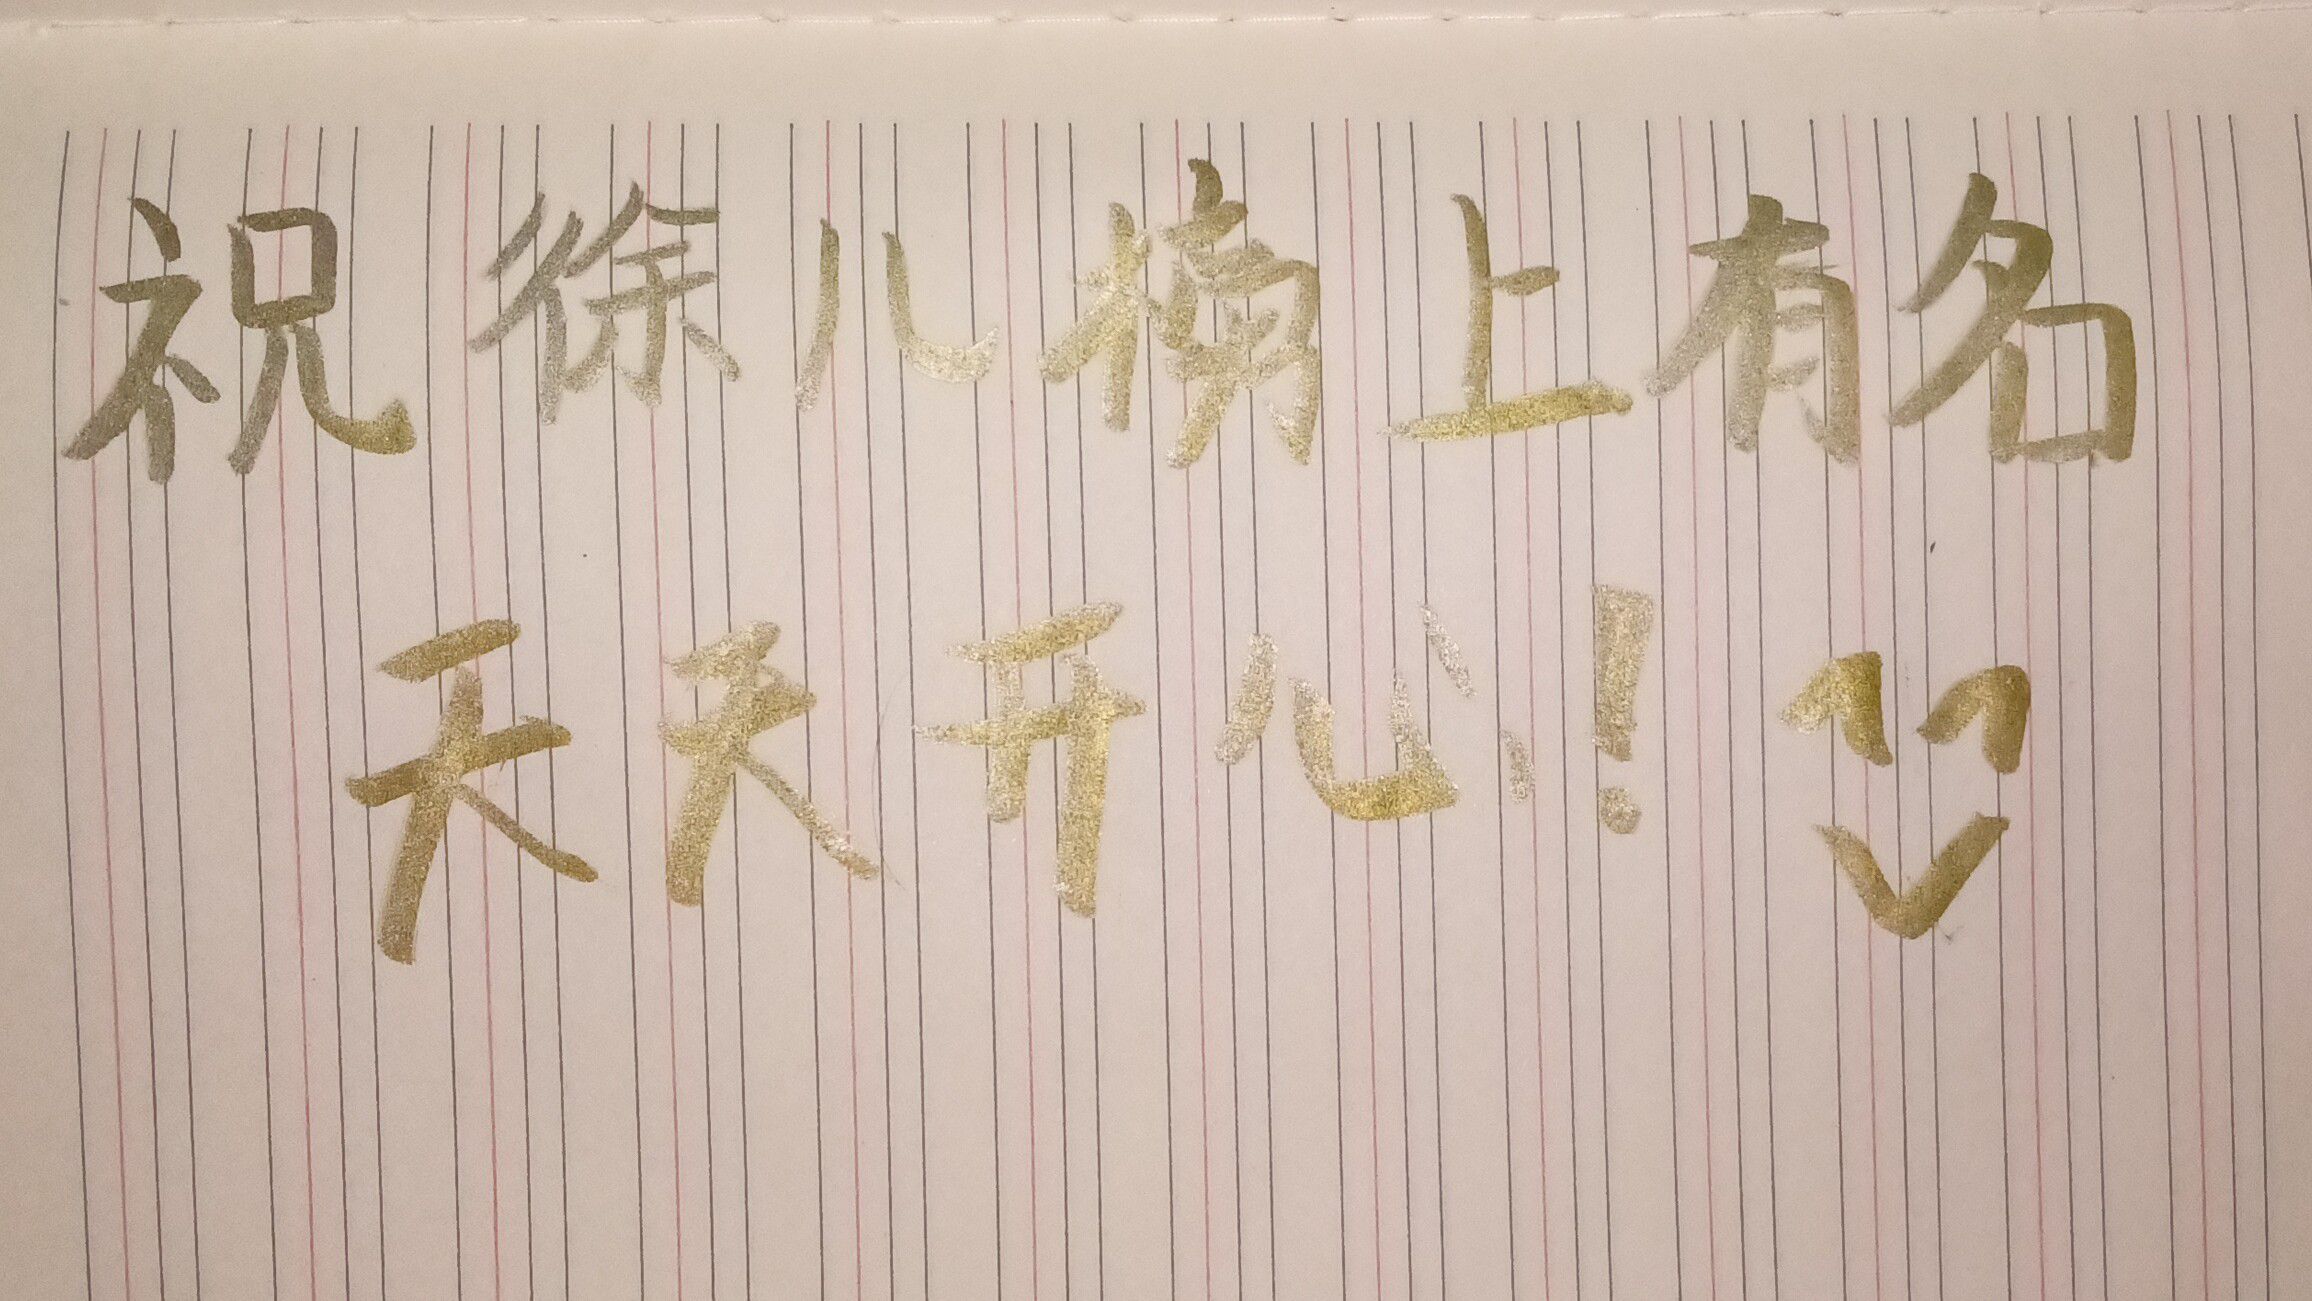 祝徐儿榜上有名
天天开心!